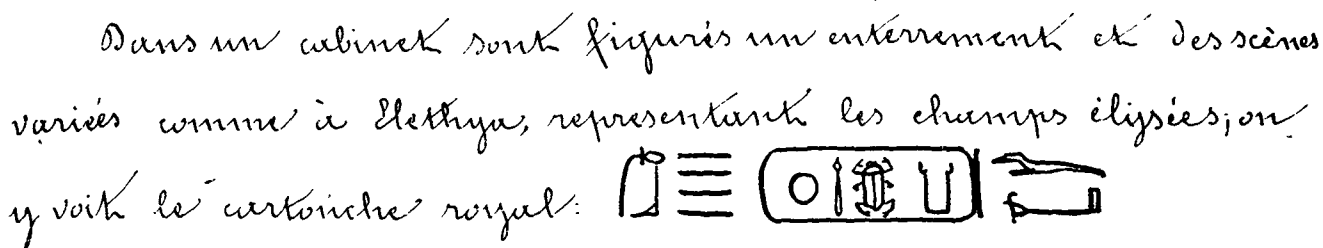 Dans un cabinet sont figurés un enterrement et des scènes
variées comme à Elethya, représentant les champs élysées; on
y voit le cartouche royal: